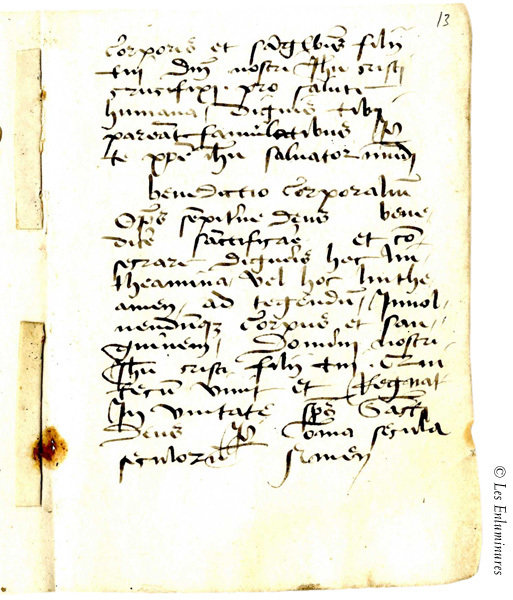 13
corporis et sangwis filii
tui dni nostri Jhu cristi
crucifixi pro salute
humana dignis tibi
pareat famulatibus P
te xpe ihu salvator mundi
benedictio corporalium
Ops sempitne deus bene
dicere sanctificare et con
secrare digneris hec lin
theamina vel hoc linthe
amen ad tegendum Invol
uendumqz corpus et san
guinem Domini nostri
Jhu cristi filii tui Qui
tecum vivit et Regnat
In unitate sps sancti
Deus P omnia secula
seculorum Amen
© Les Enluminures